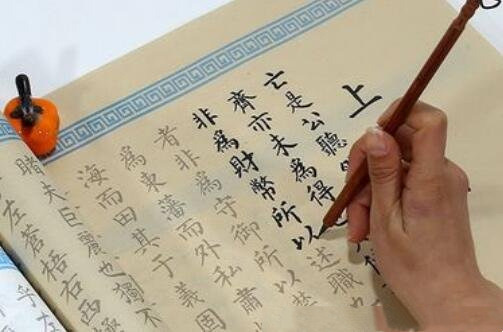 上
亡是公聽
齊亦未為得
非為財幣所以述職
者非為守御所以
為東藩而外私肅
海而田其于義固
睹夫巨麗也獨不
左蒼梧右西極
乎